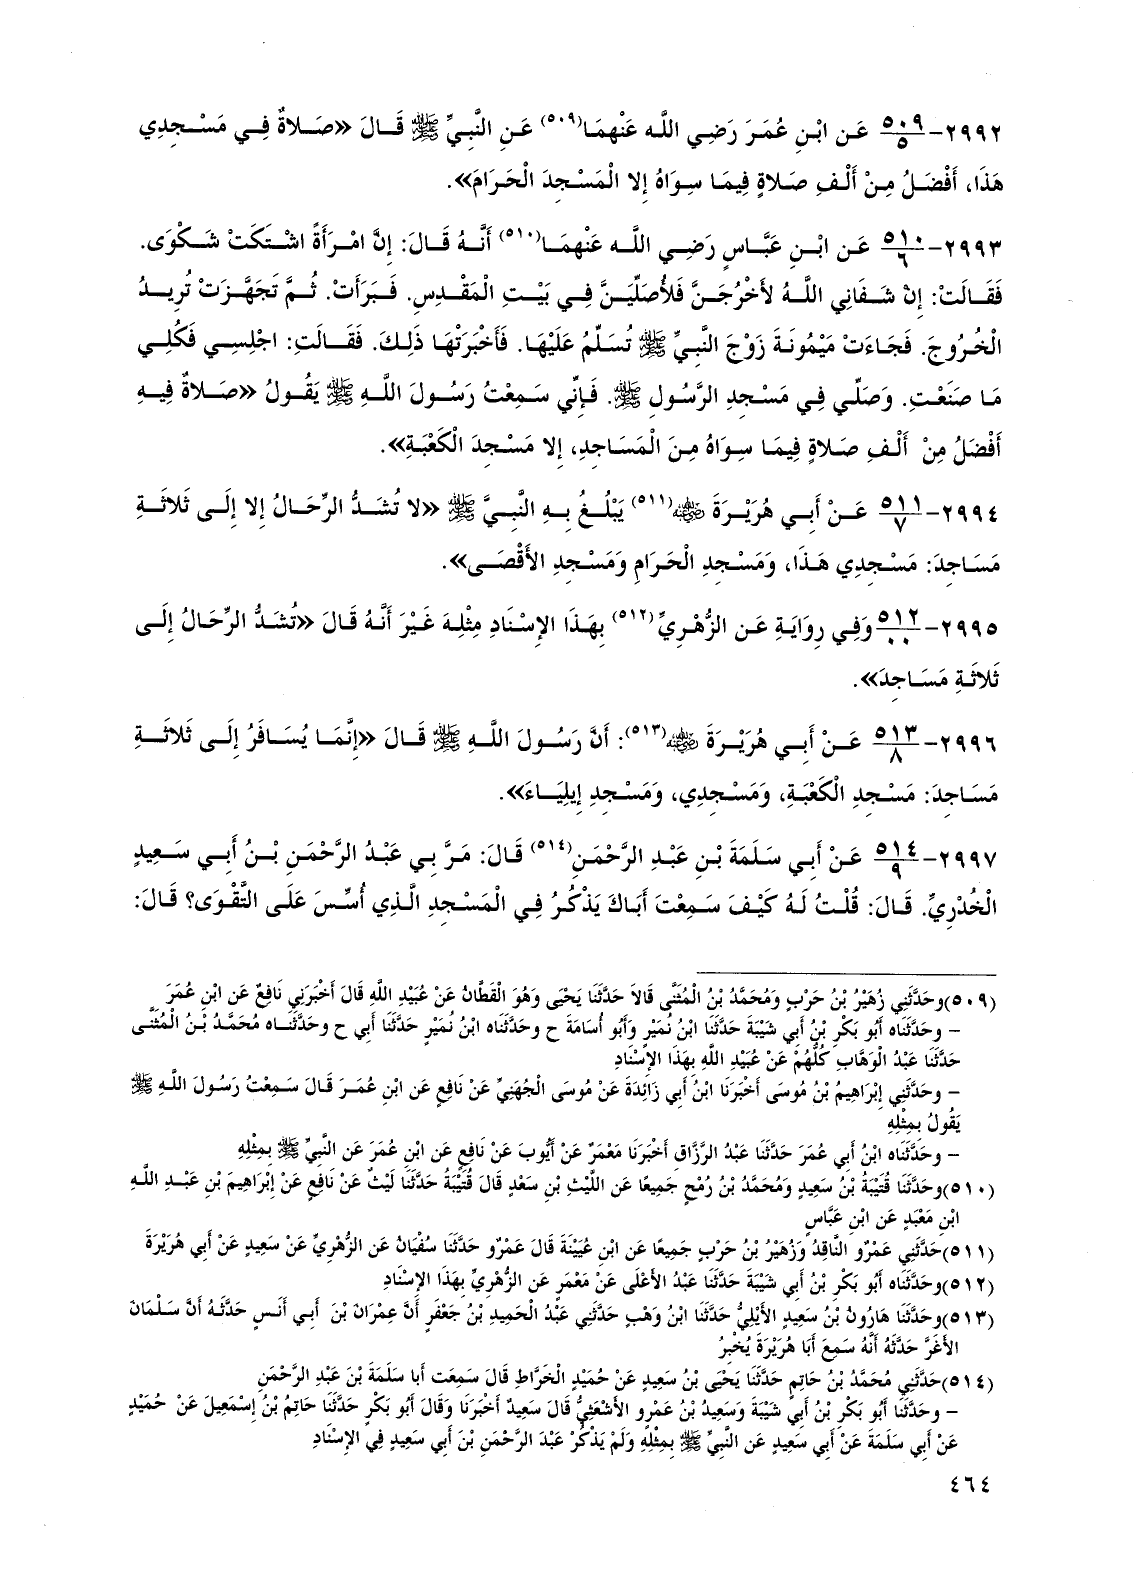 ٢٩٩٢-٥٠٩/٥ عَنِ ابْنِ عُمَرَ رَضِيَ اللَّه عَنْهُمَا(٥٠٩) عَنِ النَّبِيِّ ﷺ قَالَ «صَلاةٌ فِي مَسْجِدِي
هَذَا، أَفْضَلُ مِنْ أَلْفِ صَلاةٍ فِيمَا سِوَاهُ إِلا الْمَسْجِدَ الْحَرَامَ».
٢٩٩٣-٥١٠/٦ عَنِ ابْنِ عَبَّاسٍ رَضِيَ اللَّه عَنْهُمَا(٥١٠) أَنَّهُ قَالَ: إِنَّ امْرَأَةً اشْتَكَتْ شَكْوَى.
فَقَالَتْ: إِنْ شَفَانِي اللَّهُ لأَخْرُجَنَّ فَلأُصَلِّيَنَّ فِي بَيْتِ الْمَقْدِسِ. فَبَرَأَتْ. ثُمَّ تَجَهَّزَتْ تُرِيدُ
الْخُرُوجَ. فَجَاءَتْ مَيْمُونَةَ زَوْجَ النَّبِيِّ ﷺ تُسَلِّمُ عَلَيْهَا. فَأَخْبَرَتْهَا ذَلِكَ. فَقَالَتِ: اجْلِسِي فَكُلِي
مَا صَنَعْتِ. وَصَلِّي فِي مَسْجِدِ الرَّسُولِ ﷺ. فَإِنِّي سَمِعْتُ رَسُولَ اللَّهِ ﷺ يَقُولُ «صَلاةٌ فِيهِ
أَفْضَلُ مِنْ أَلْفِ صَلاةٍ فِيمَا سِوَاهُ مِنَ الْمَسَاجِدِ، إِلا مَسْجِدَ الْكَعْبَةِ».
٢٩٩٤-٥١١/٧ عَنْ أَبِي هُرَيْرَةَ رضي الله عنه(٥١١) يَبْلُغُ بِهِ النَّبِيَّ ﷺ «لا تُشَدُّ الرِّحَالُ إِلا إِلَى ثَلاثَةِ
مَسَاجِدَ: مَسْجِدِي هَذَا، وَمَسْجِدِ الْحَرَامِ وَمَسْجِدِ الأَقْصَى».
٢٩٩٥-٥١٢/٠٠ وَفِي رِوَايَةٍ عَنِ الزُّهْرِيِّ(٥١٢) بِهَذَا الإِسْنَادِ مِثْلِهَ غَيْرَ أَنَّهُ قَالَ «تُشَدُّ الرِّحَالُ إِلَى
ثَلاثَةِ مَسَاجِدَ».
٢٩٩٦-٥١٣/٨ عَنْ أَبِي هُرَيْرَةَ رضي الله عنه(٥١٣): أَنَّ رَسُولَ اللَّهِ ﷺ قَالَ «إِنَّمَا يُسَافَرُ إِلَى ثَلاثَةِ
مَسَاجِدَ: مَسْجِدِ الْكَعْبَةِ، وَمَسْجِدِي، وَمَسْجِدِ إِيلِيَاءَ».
٢٩٩٧-٥١٤/٩ عَنْ أَبِي سَلَمَةَ بْنِ عَبْدِ الرَّحْمَنِ(٥١٤) قَالَ: مَرَّ بِي عَبْدُ الرَّحْمَنِ بْنُ أَبِي سَعِيدٍ
الْخُدْرِيِّ. قَالَ: قُلْتُ لَهُ كَيْفَ سَمِعْتَ أَبَاكَ يَذْكُرُ فِي الْمَسْجِدِ الَّذِي أُسِّسَ عَلَى التَّقْوَى؟ قَالَ:
(٥٠٩)وحَدَّثَنِي زُهَيْرُ بْنُ حَرْبٍ وَمُحَمَّدُ بْنُ الْمُثَنَّى قَالاَ حَدَّثَنَا يَحْيَى وَهُوَ الْقَطَّانُ عَنْ عُبَيْدِ اللَّهِ قَالَ أَخْبَرَنِي نَافِعٌ عَنِ ابْنِ عُمَرَ
– وحَدَّثَنَاه أَبُو بَكْرِ بْنُ أَبِي شَيْبَةَ حَدَّثَنَا ابْنُ نُمَيْرٍ وَأَبُو أُسَامَةَ ح وحَدَّثَنَاه ابْنُ نُمَيْرٍ حَدَّثَنَا أَبِي ح وحَدَّثَنَاه مُحَمَّدُ بْنُ الْمُثَنَّى
حَدَّثَنَا عَبْدُ الْوَهَّابِ كُلُّهُمْ عَنْ عُبَيْدِ اللَّهِ بِهَذَا الإِسْنَادِ
– وحَدَّثَنِي إِبْرَاهِيمُ بْنُ مُوسَى أَخْبَرَنَا ابْنُ أَبِي زَائِدَةَ عَنْ مُوسَى الْجُهَنِيِّ عَنْ نَافِعٍ عَنِ ابْنِ عُمَرَ قَالَ سَمِعْتُ رَسُولَ اللَّهِ ﷺ
يَقُولُ بِمِثْلِهِ
– وحَدَّثَنَاه ابْنُ أَبِي عُمَرَ حَدَّثَنَا عَبْدُ الرَّزَّاقِ أَخْبَرَنَا مَعْمَرٌ عَنْ أَيُّوبَ عَنْ نَافِعٍ عَنِ ابْنِ عُمَرَ عَنِ النَّبِيِّ ﷺ بِمِثْلِهِ
(٥١٠)وحَدَّثَنَا قُتَيْبَةُ بْنُ سَعِيدٍ وَمُحَمَّدُ بْنُ رُمْحٍ جَمِيعًا عَنِ اللَّيْثِ بْنِ سَعْدٍ قَالَ قُتَيْبَةُ حَدَّثَنَا لَيْثٌ عَنْ نَافِعٍ عَنْ إِبْرَاهِيمَ بْنِ عَبْدِ اللَّهِ
ابْنِ مَعْبَدٍ عَنِ ابْنِ عَبَّاسٍ
(٥١١)حَدَّثَنِي عَمْرٌو النَّاقِدُ وَزُهَيْرُ بْنُ حَرْبٍ جَمِيعًا عَنِ ابْنِ عُيَيْنَةَ قَالَ عَمْرٌو حَدَّثَنَا سُفْيَانُ عَنِ الزُّهْرِيِّ عَنْ سَعِيدٍ عَنْ أَبِي هُرَيْرَةَ
(٥١٢)وحَدَّثَنَاه أَبُو بَكْرِ بْنُ أَبِي شَيْبَةَ حَدَّثَنَا عَبْدُ الأَعْلَى عَنْ مَعْمَرٍ عَنِ الزُّهْرِيِّ بِهَذَا الإِسْنَادِ
(٥١٣)وحَدَّثَنَا هَارُونُ بْنُ سَعِيدٍ الأَيْلِيُّ حَدَّثَنَا ابْنُ وَهْبٍ حَدَّثَنِي عَبْدُ الْحَمِيدِ بْنُ جَعْفَرٍ أَنَّ عِمْرَانَ بْنَ أَبِي أَنَسٍ حَدَّثَهُ أَنَّ سَلْمَانَ
الأَغَرَّ حَدَّثَهُ أَنَّهُ سَمِعَ أَبَا هُرَيْرَةَ يُخْبِرُ
(٥١٤)حَدَّثَنِي مُحَمَّدُ بْنُ حَاتِمٍ حَدَّثَنَا يَحْيَى بْنُ سَعِيدٍ عَنْ حُمَيْدٍ الْخَرَّاطِ قَالَ سَمِعْت أَبَا سَلَمَةَ بْنَ عَبْدِ الرَّحْمَنِ
– وحَدَّثَنَا أَبُو بَكْرِ بْنُ أَبِي شَيْبَةَ وَسَعِيدُ بْنُ عَمْرٍو الأَشْعَثِيُّ قَالَ سَعِيدٌ أَخْبَرَنَا وَقَالَ أَبُو بَكْرٍ حَدَّثَنَا حَاتِمُ بْنُ إِسْمَعِيلَ عَنْ حُمَيْدٍ
عَنْ أَبِي سَلَمَةَ عَنْ أَبِي سَعِيدٍ عَنِ النَّبِيِّ ﷺ بِمِثْلِهِ وَلَمْ يَذْكُرْ عَبْدَ الرَّحْمَنِ بْنَ أَبِي سَعِيدٍ فِي الإِسْنَادِ
٤٦٤